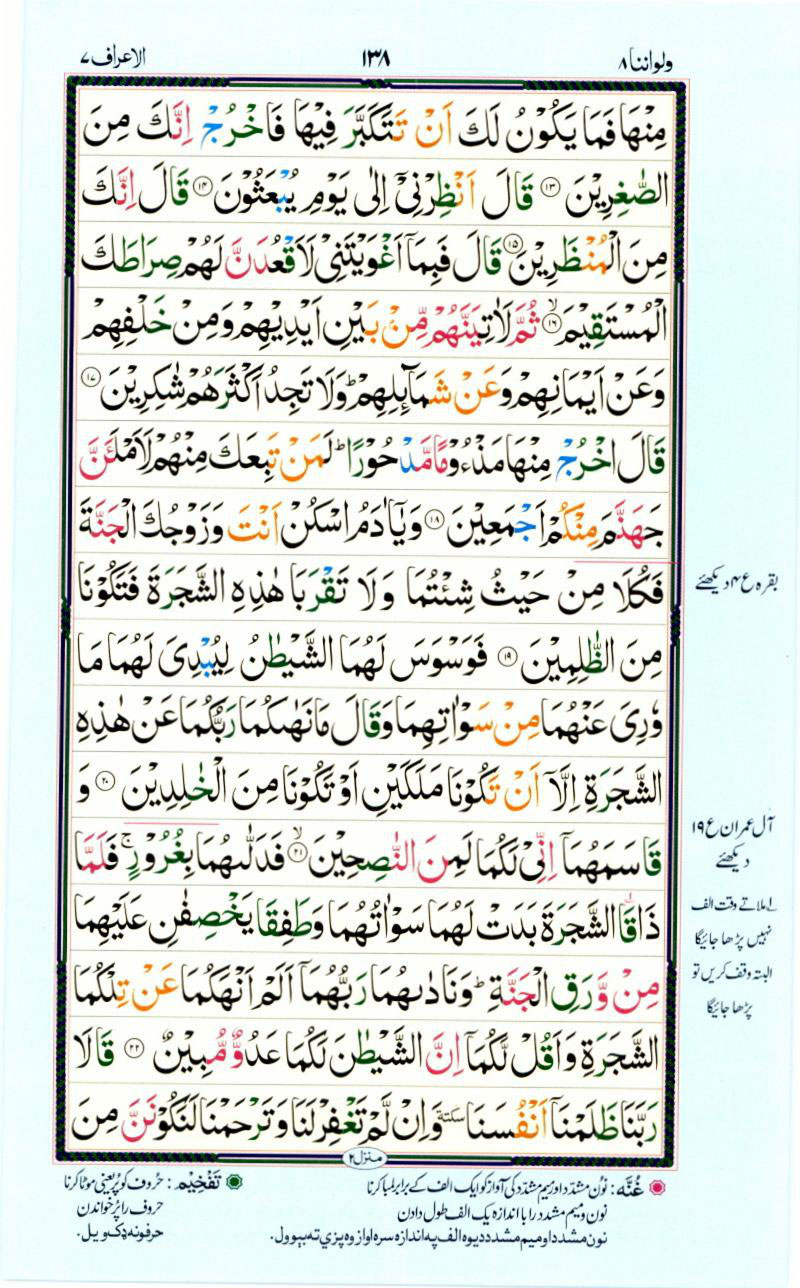 ولواننا ۸
۱۳۸
الاعراف ۷
مِنْهَا فَمَا يَكُوْنُ لَكَ اَنْ تَتَكَبَّرَ فِيْهَا فَاخْرُجْ اِنَّكَ مِنَ
الصّٰغِرِيْنَ ۱۳ قَالَ اَنْظِرْنِيْٓ اِلٰى يَوْمِ يُبْعَثُوْنَ ۱۴ قَالَ اِنَّكَ
مِنَ الْمُنْظَرِيْنَ ۱۵ قَالَ فَبِمَآ اَغْوَيْتَنِيْ لَاَقْعُدَنَّ لَهُمْ صِرَاطَكَ
الْمُسْتَقِيْمَ ۱۶ۙ ثُمَّ لَاٰتِيَنَّهُمْ مِّنْۢ بَيْنِ اَيْدِيْهِمْ وَمِنْ خَلْفِهِمْ
وَعَنْ اَيْمَانِهِمْ وَعَنْ شَمَآئِلِهِمْ ؕ وَلَا تَجِدُ اَكْثَرَهُمْ شٰكِرِيْنَ ۱۷
قَالَ اخْرُجْ مِنْهَا مَذْءُوْمًا مَّدْحُوْرًا ؕ لَمَنْ تَبِعَكَ مِنْهُمْ لَاَمْلَئَنَّ
جَهَنَّمَ مِنْكُمْ اَجْمَعِيْنَ ۱۸ وَيٰٓاٰدَمُ اسْكُنْ اَنْتَ وَزَوْجُكَ الْجَنَّةَ
فَكُلَا مِنْ حَيْثُ شِئْتُمَا وَلَا تَقْرَبَا هٰذِهِ الشَّجَرَةَ فَتَكُوْنَا
مِنَ الظّٰلِمِيْنَ ۱۹ فَوَسْوَسَ لَهُمَا الشَّيْطٰنُ لِيُبْدِيَ لَهُمَا مَا
وٗرِيَ عَنْهُمَا مِنْ سَوْاٰتِهِمَا وَقَالَ مَا نَهٰىكُمَا رَبُّكُمَا عَنْ هٰذِهِ
الشَّجَرَةِ اِلَّآ اَنْ تَكُوْنَا مَلَكَيْنِ اَوْ تَكُوْنَا مِنَ الْخٰلِدِيْنَ ۲۰ وَ
قَاسَمَهُمَآ اِنِّيْ لَكُمَا لَمِنَ النّٰصِحِيْنَ ۲۱ۙ فَدَلّٰىهُمَا بِغُرُوْرٍ ۚ فَلَمَّا
ذَاقَا الشَّجَرَةَ بَدَتْ لَهُمَا سَوْاٰتُهُمَا وَطَفِقَا يَخْصِفٰنِ عَلَيْهِمَا
مِنْ وَّرَقِ الْجَنَّةِ ؕ وَنَادٰىهُمَا رَبُّهُمَآ اَلَمْ اَنْهَكُمَا عَنْ تِلْكُمَا
الشَّجَرَةِ وَاَقُلْ لَّكُمَآ اِنَّ الشَّيْطٰنَ لَكُمَا عَدُوٌّ مُّبِيْنٌ ۲۲ قَالَا
رَبَّنَا ظَلَمْنَآ اَنْفُسَنَا سكتة وَاِنْ لَّمْ تَغْفِرْ لَنَا وَتَرْحَمْنَا لَنَكُوْنَنَّ مِنَ
منزل ۲
بقرہ ع ۴ دیکھئے
آل عمران ع ۱۹
دیکھئے
ملاتے وقت الف
نہیں پڑھا جائیگا
البتہ وقف کریں تو
پڑھا جائیگا
غُنَّه: نون مشدّد اور میم مشدّد کی آواز کو ایک الف کے برابر لمبا کرنا
نون و میم مشدد را با اندازه یک الف طول دادن
نون مشدد او میم مشدد د یوه الف په اندازه سره اواز وه پزې ته بېوول.
تَفْخِیْم: حرُوف کو پُر یعنی موٹا کرنا
حروف را پُر خواندن
حرفونه ډک ویل.